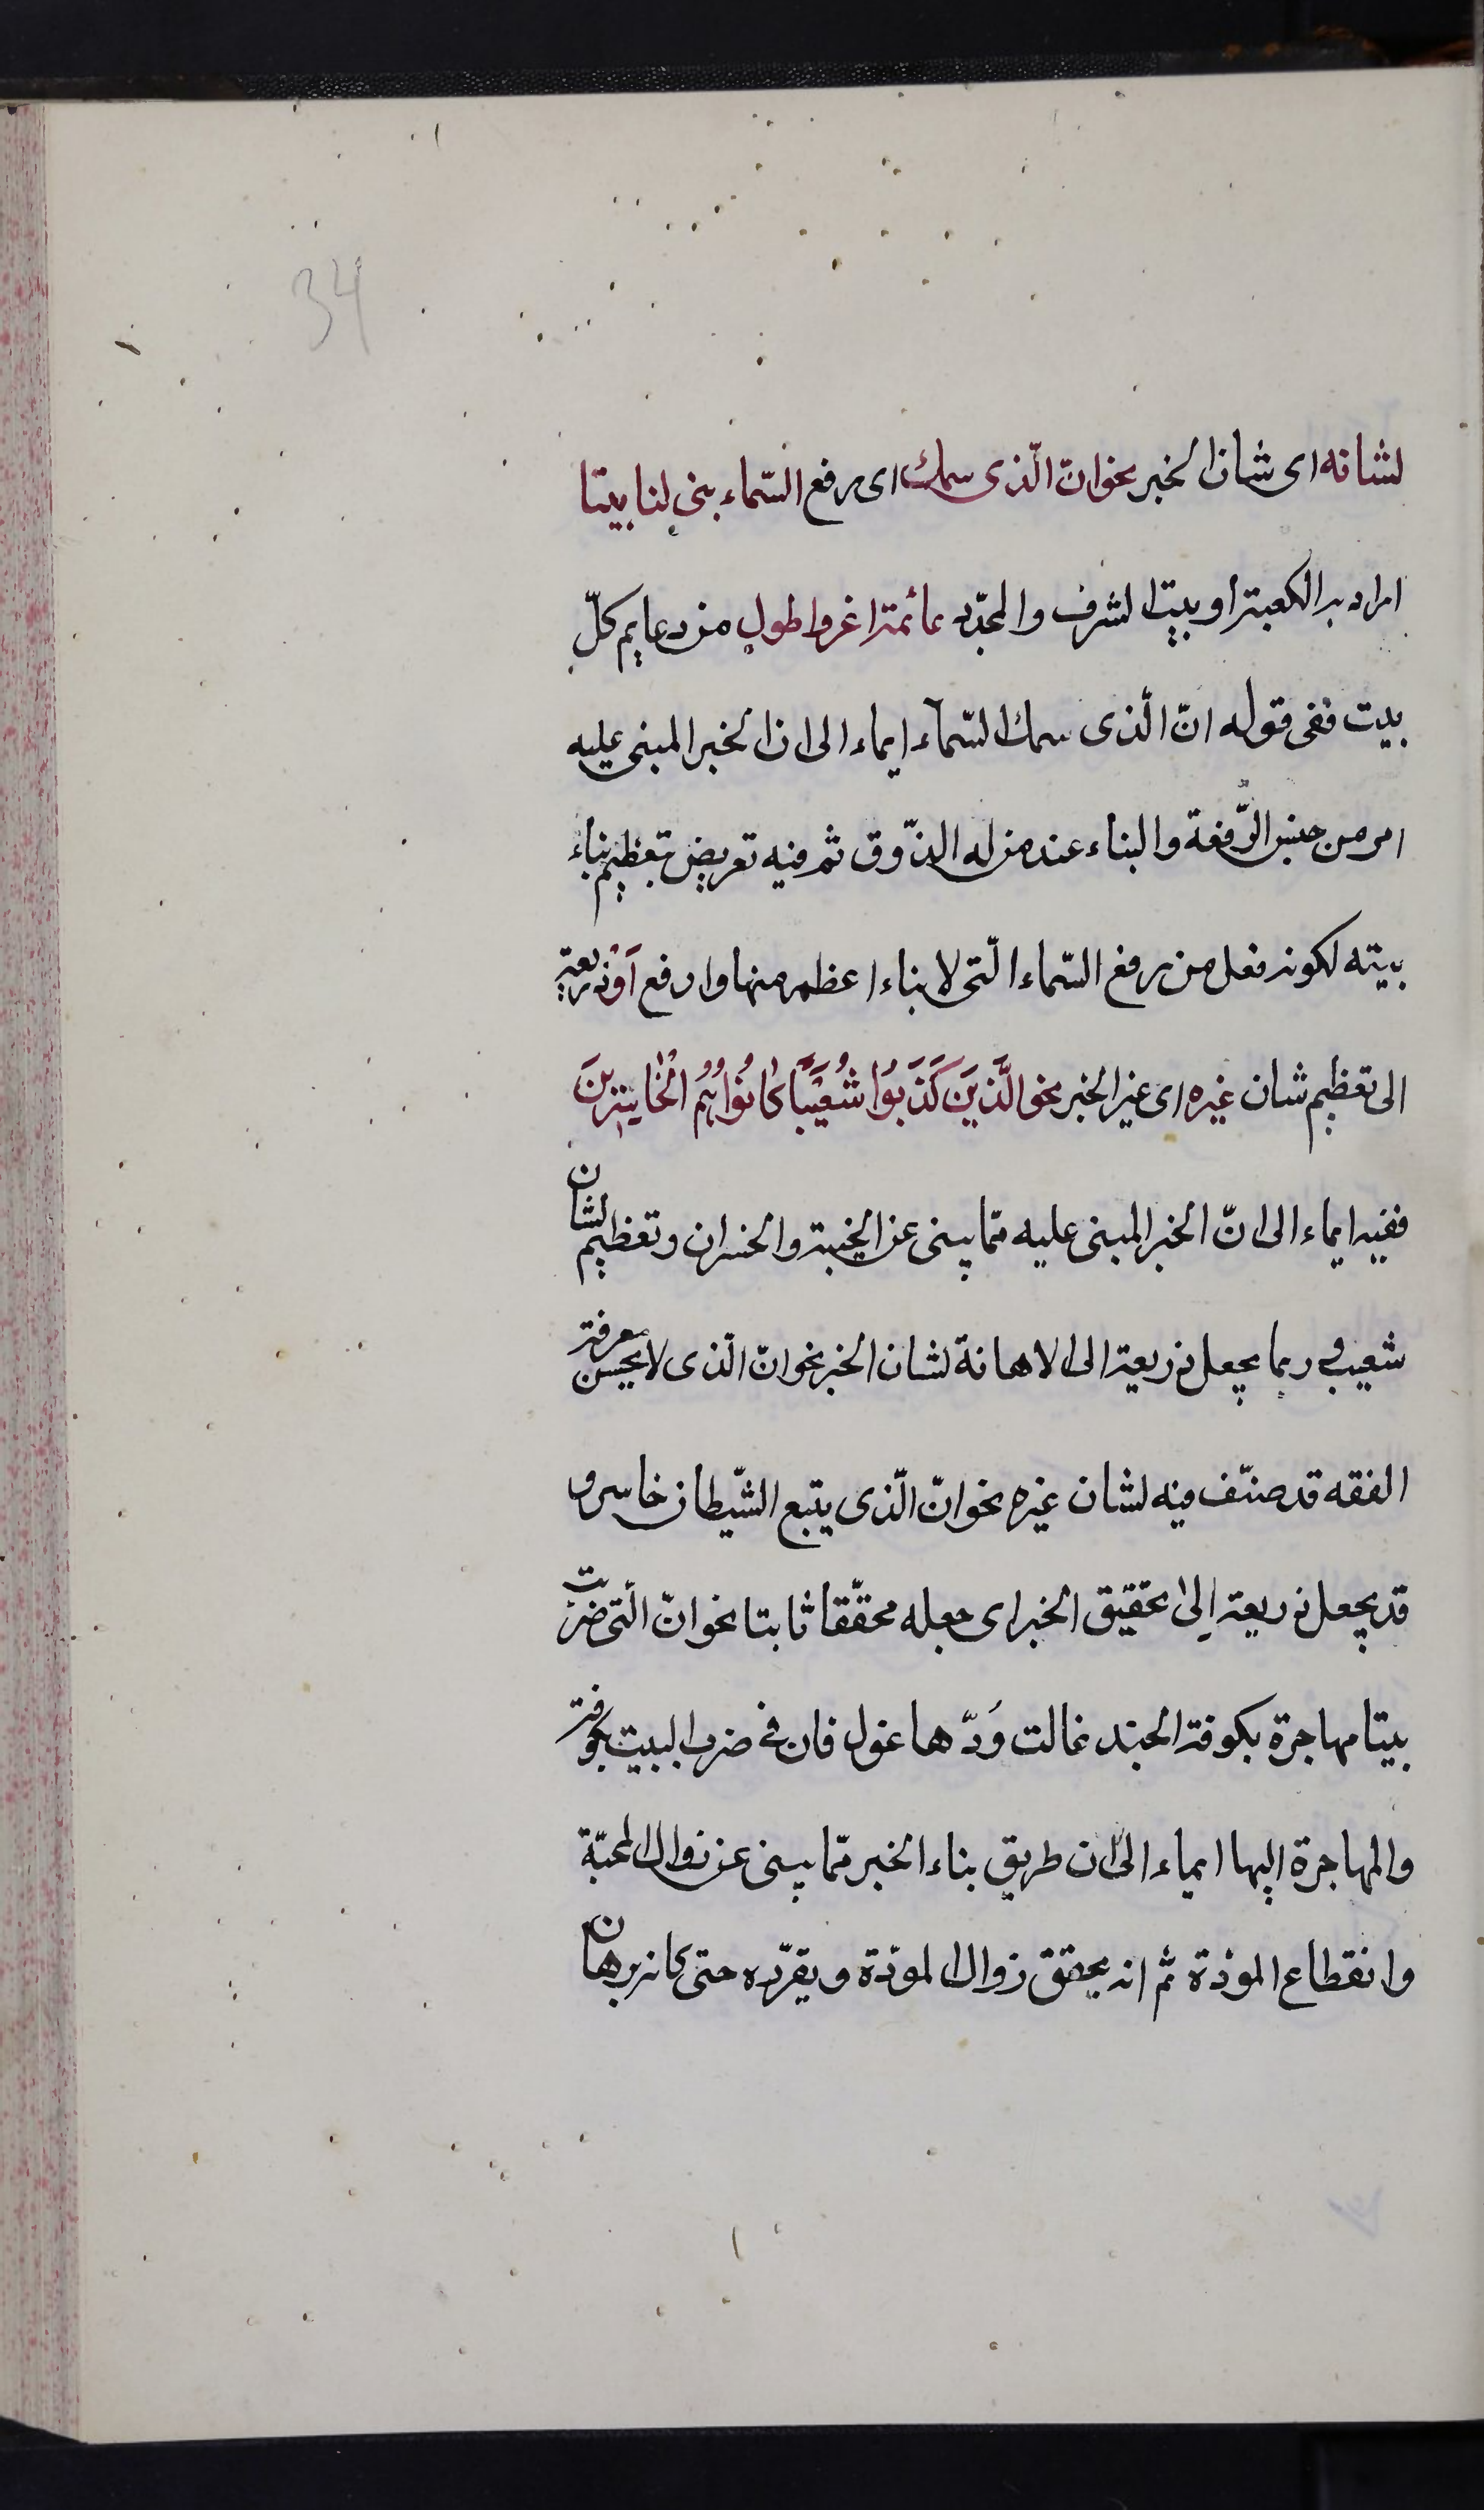 34
لشانه اى شان الخبر نحو انّ الّذى سمك اى رفع السّماء بنى لنا بيتا
اراد به الكعبة او بيت الشرف والمجد دعائمه اعز واطول من دعايم كلّ
بيت ففى قوله انّ الّذى سمك السّماء ايماء الى ان الخبر المبنى عليه
امر من جنس الرّفعة والبناء عند من له الذّوق ثم فيه تعريض بتعظيم بناء
بيته لكونه فعل من رفع السّماء الّتى لا بناء اعظم منها وارفع اَوْ ذريعة
الى تعظيم شان غيره اى غير الخبر نحو الَّذينَ كَذَبوُا شُعَيْباً كانوُا هُمُ الْخاسِرينَ
ففيه ايماء الى انّ الخبر المبنى عليه ممّا ينبئ عن الخيبة والخسران وتعظيم لشان
شعيب و ربما يجعل ذريعة الى الاهانة لشان الخبر نحو انّ الّذى لا يحسن معرفة
الفقه قد صنّف فيه لشان غيره نحو انّ الّذى يتبع الشّيطان خاسر و
قد يجعل ذريعة اِلى تحقيق الخبر اى جعله محقّقا ثابتا نحو انّ الّتى ضربت
بيتا مهاجرة بكوفة الجند غالت وَدّها غول فان فى ضرب البيت بكوفة
والمهاجرة اليها ايماء الى ان طريق بناء الخبر ممّا ينبئ عن زوال المحبّة
وانقطاع المودّة ثم انه يحقق زوال المودّة ويقرّره حتى كانه برهان